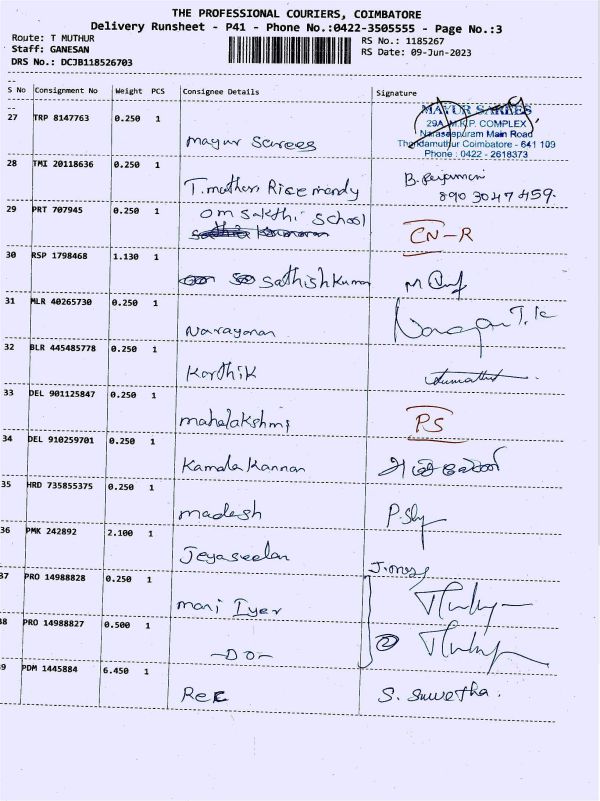 THE PROFESSIONAL COURIERS, COIMBATORE
Delivery Runsheet - P41 - Phone No.:0422-3505555 - Page No.:3
Route: T MUTHUR
RS No.: 1185267
Staff: GANESAN
RS Date: 09-Jun-2023
DRS No.: DCJB118526703
S No Consignment No Weight PCS Consignee Details Signature
27 TRP 8147763 0.250 1 Mayur Sarees
MAYUR SAREES
29A, M.K.P. COMPLEX
Naraseepuram Main Road
Thondamuthur Coimbatore - 641 109
Phone : 0422 - 2618373
28 TMI 20118636 0.250 1 T.muthur Rice mandy
890 3047 459.
29 PRT 707945 0.250 1 Om Sakthi School CN-R
30 RSP 1798468 1.130 1 Sathishkumar
31 MLR 40265730 0.250 1 Narayanan
32 BLR 445485778 0.250 1 Karthik
33 DEL 901125847 0.250 1 mahalakshmi PS
34 DEL 910259701 0.250 1 Kamala Kannan
35 HRD 735855375 0.250 1 madesh
36 PMK 242892 2.100 1 Jeyaseelan
37 PRO 14988828 0.250 1 mani Iyer
38 PRO 14988827 0.500 1 -DO- 2
39 PDM 1445884 6.450 1 Rec S. Suwetha.